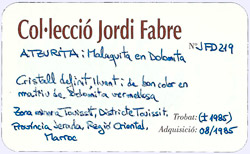 Col·lecció Jordi Fabre
ATZURITA i Malaquita en Dolomita
Nº JFD219
Cristall definit lluent i de bon color en
matriu de Dolomita vermellosa
Zona minera Touissit, Districte Touissit,
Província Jerada, Regió Oriental,
Marroc
Trobat: (± 1985)
Adquisició: 08/1985